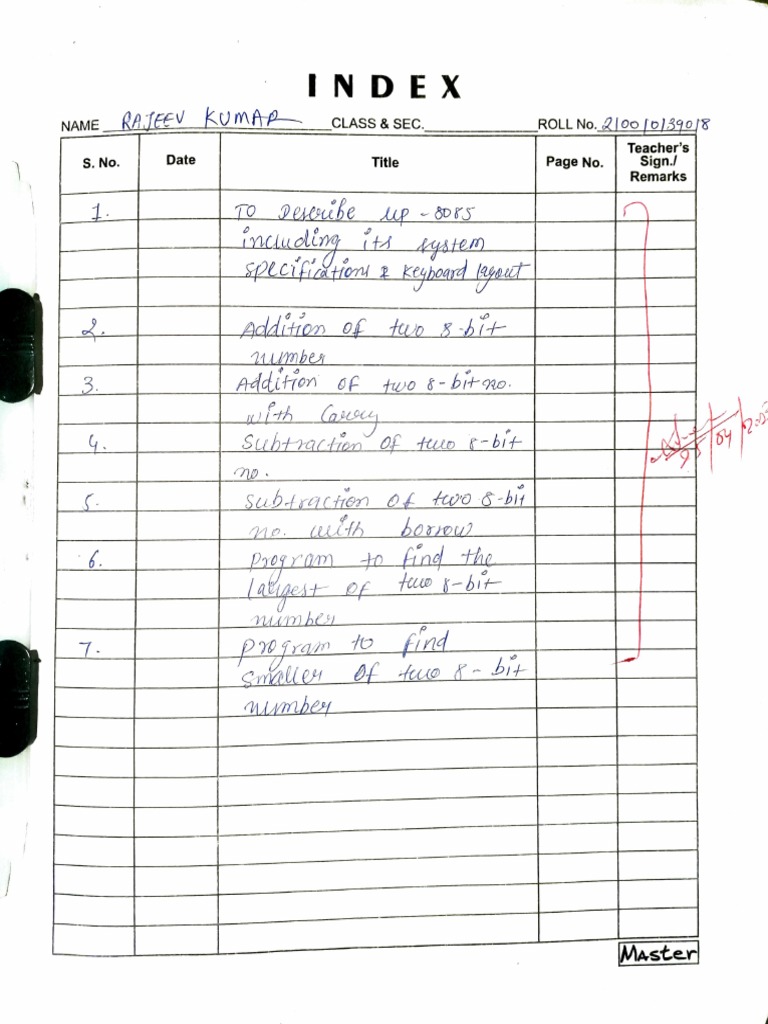 INDEX
NAME RAJEEV KUMAR CLASS & SEC. ROLL No. 21001039018
S. No. Date Title Page No. Teacher's Sign./ Remarks
1. To Describe up-8085
including its system
specifications & keyboard layout
2. Addition of two 8-bit
number
3. Addition of two 8-bit no.
with Carry
4. Subtraction of two 8-bit
no.
5. Subtraction of two 8-bit
no. with borrow
6. Program to find the
largest of two 8-bit
number
7. Program to find
smaller of two 8-bit
number
Master